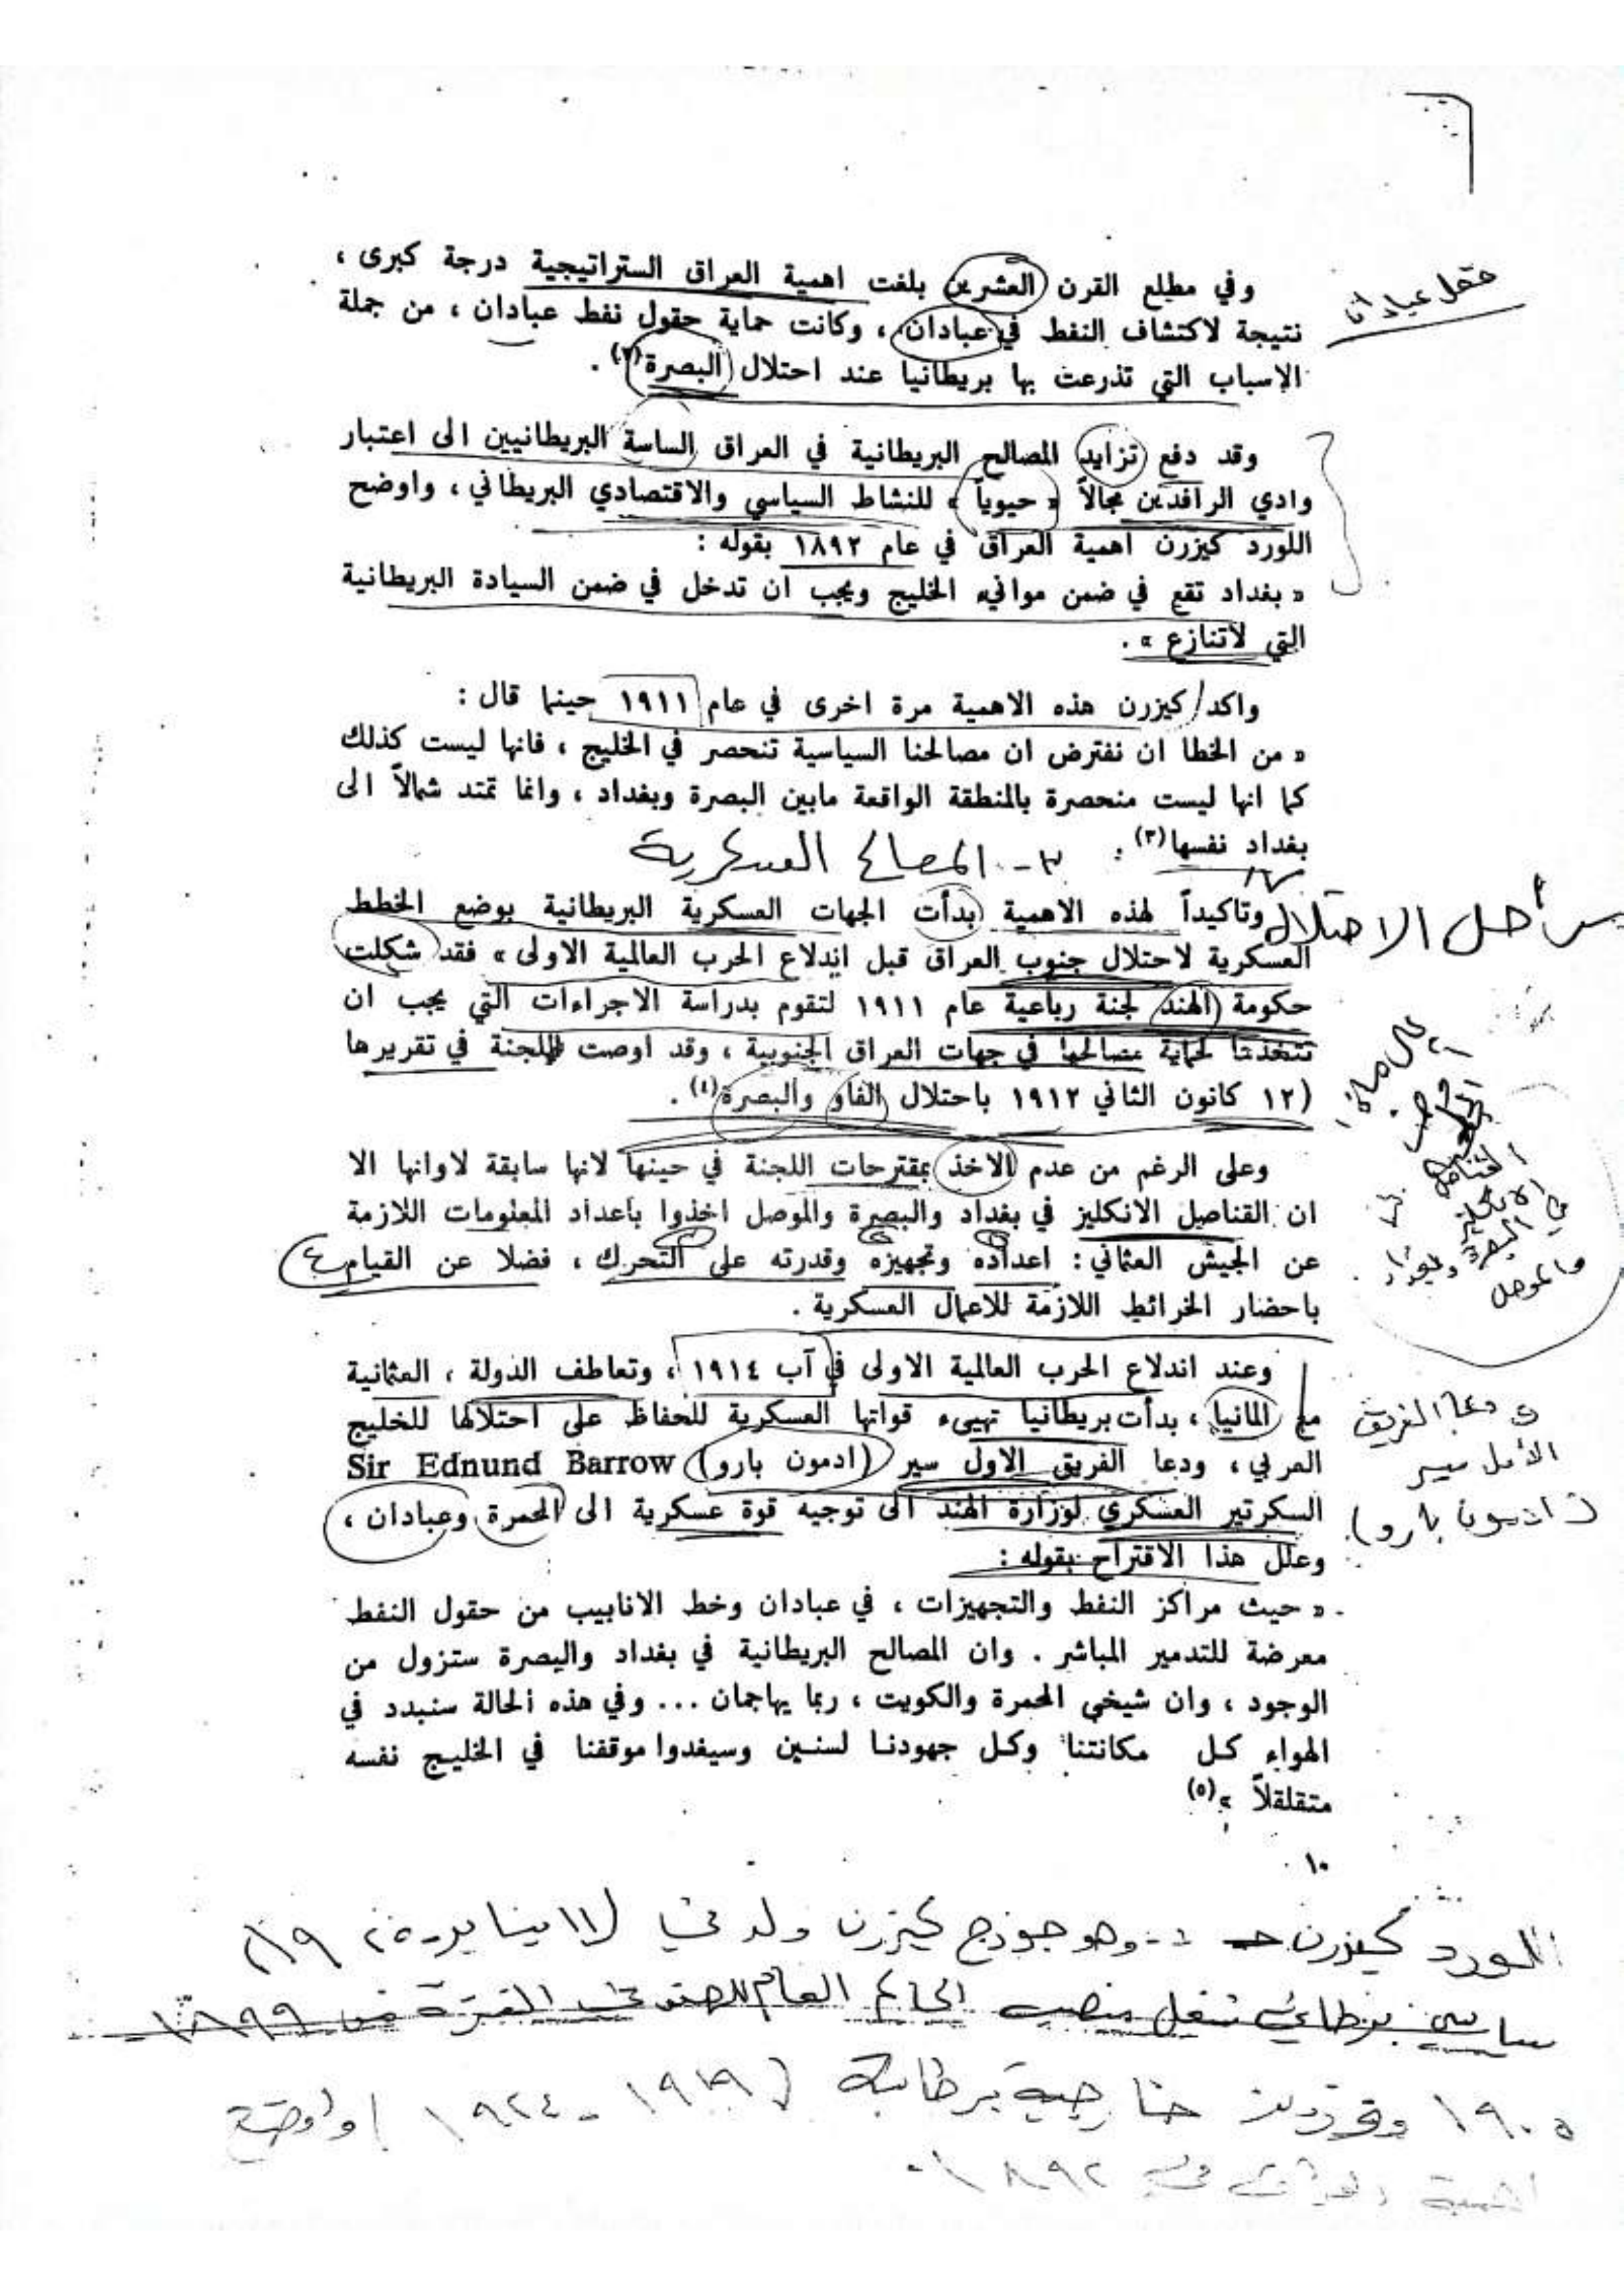 وفي مطلع القرن العشرين بلغت اهمية العراق الستراتيجية درجة كبرى ،
نتيجة لاكتشاف النفط في عبادان ، وكانت حماية حقول نفط عبادان ، من جملة
الاسباب التي تذرعت بها بريطانيا عند احتلال البصرة(٢) .
وقد دفع تزايد المصالح البريطانية في العراق الساسة البريطانيين الى اعتبار
وادي الرافدين مجالاً « حيوياً » للنشاط السياسي والاقتصادي البريطاني ، واوضح
اللورد كيزرن اهمية العراق في عام ١٨٩٢ بقوله :
« بغداد تقع في ضمن موانيء الخليج ويجب ان تدخل في ضمن السيادة البريطانية
التي لاتنازع » .
واكد كيزرن هذه الاهمية مرة اخرى في عام ١٩١١ حينما قال :
« من الخطا ان نفترض ان مصالحنا السياسية تنحصر في الخليج ، فانها ليست كذلك
كما انها ليست منحصرة بالمنطقة الواقعة مابين البصرة وبغداد ، وانما تمتد شمالاً الى
بغداد نفسها(٣) .
٣ - المصالح العسكرية
مراحل الاحتلال
وتاكيداً لهذه الاهمية بدأت الجهات العسكرية البريطانية بوضع الخطط
العسكرية لاحتلال جنوب العراق قبل اندلاع الحرب العالمية الاولى » فقد شكلت
حكومة الهند لجنة رباعية عام ١٩١١ لتقوم بدراسة الاجراءات التي يجب ان
تتخذها لحماية مصالحها في جهات العراق الجنوبية ، وقد اوصت اللجنة في تقريرها
(١٢ كانون الثاني ١٩١٢ باحتلال الفاو والبصرة(٤) .
وعلى الرغم من عدم الاخذ بمقترحات اللجنة في حينها لانها سابقة لاوانها الا
ان القناصل الانكليز في بغداد والبصرة والموصل اخذوا بأعداد المعلومات اللازمة
عن الجيش العثماني : اعداده وتجهيزه وقدرته على التحرك ، فضلا عن القيام
باحضار الخرائط اللازمة للاعمال العسكرية .
وعند اندلاع الحرب العالمية الاولى في آب ١٩١٤ ، وتعاطف الدولة ، العثمانية
مع المانيا ، بدأت بريطانيا تهيىء قواتها العسكرية للحفاظ على احتلالها للخليج
العربي ، ودعا الفريق الاول سير (ادمون بارو) Sir Ednund Barrow
السكرتير العسكري لوزارة الهند الى توجيه قوة عسكرية الى المحمرة وعبادان ،
وعلل هذا الاقتراح بقوله :
« حيث مراكز النفط والتجهيزات ، في عبادان وخط الانابيب من حقول النفط
معرضة للتدمير المباشر . وان المصالح البريطانية في بغداد والبصرة ستزول من
الوجود ، وان شيخي المحمرة والكويت ، ربما يهاجمان ... وفي هذه الحالة سنبدد في
الهواء كل مكانتنا وكل جهودنا لسنين وسيغدوا موقفنا في الخليج نفسه
متقلقلاً »(٥)
ودعا الفريق
الأول سير
(ادمون بارو)
١٠
اللورد كيزرن :- وهو جورج كيزرن ولد في (١١ يناير
سياسي بريطاني شغل منصب الحاكم العام للهند في الفترة من ١٨٩٩ -
١٩٠٥ خارجية بريطانية (١٩١٩ - ١٩٢٤)
اهمية العراق في ١٨٩٢.